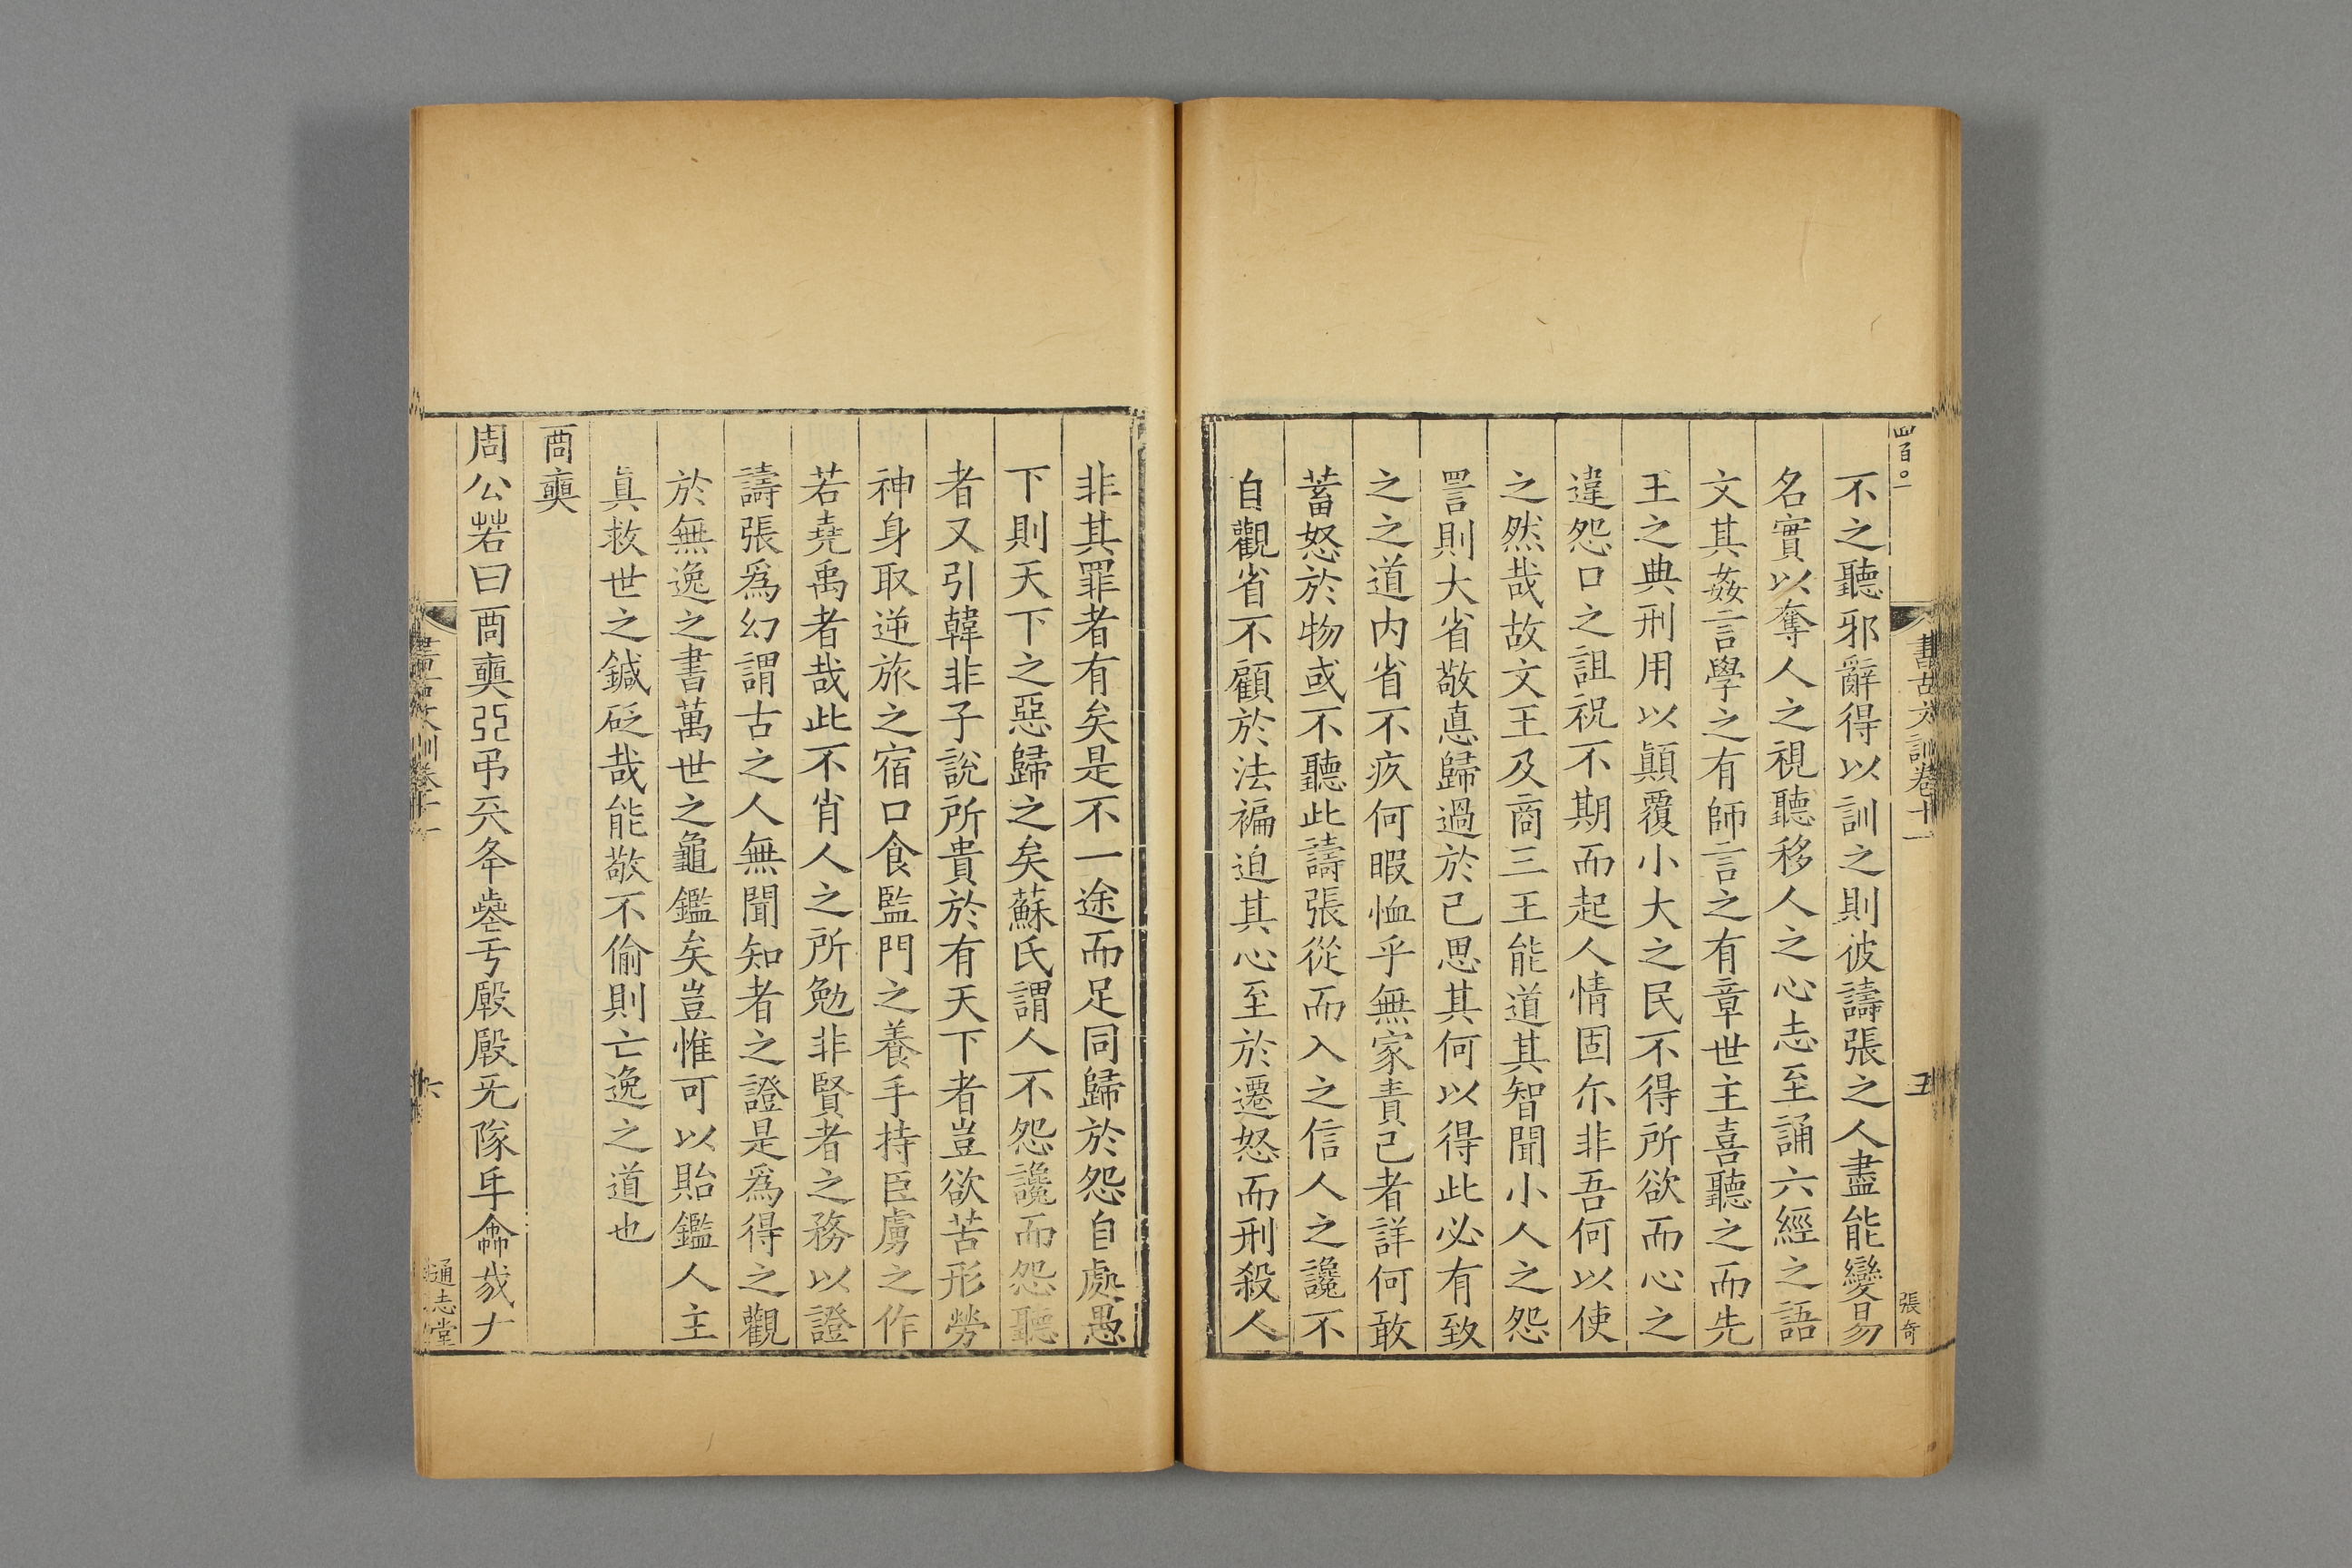 四百〇一
書古文訓卷十一
五
張奇
不之聽邪辭得以訓之則彼譸張之人盡能變易
名實以奪人之視聽移人之心志至誦六經之語
文其姦言學之有師言之有章世主喜聽之而先
王之典刑用以顛覆小大之民不得所欲而心之
違怨口之詛祝不期而起人情固尓非吾何以使
之然哉故文王及商三王能道其智聞小人之怨
詈則大省敬悳歸過於己思其何以得此必有致
之之道内省不疚何暇恤乎無家責己者詳何敢
蓄怒於物或不聽此譸張從而入之信人之讒不
自觀省不顧於法褊迫其心至於遷怒而刑殺人
非其罪者有矣是不一途而足同歸於怨自處愚
下則天下之惡歸之矣蘇氏謂人不怨讒而怨聽
者又引韓非子說所貴於有天下者豈欲苦形勞
神身取逆旅之宿口食監門之養手持臣虜之作
若堯禹者哉此不肖人之所勉非賢者之務以證
譸張爲幻謂古之人無聞知者之證是爲得之觀
於無逸之書萬世之龜鑑矣豈惟可以貽鑑人主
真救世之鍼砭哉能敬不偷則亡逸之道也
啇奭
周公若曰啇奭弜弔兲夅𣦸亏殷殷旡隊乎龠𢦏ナ
書古文訓卷十一
六
通志堂